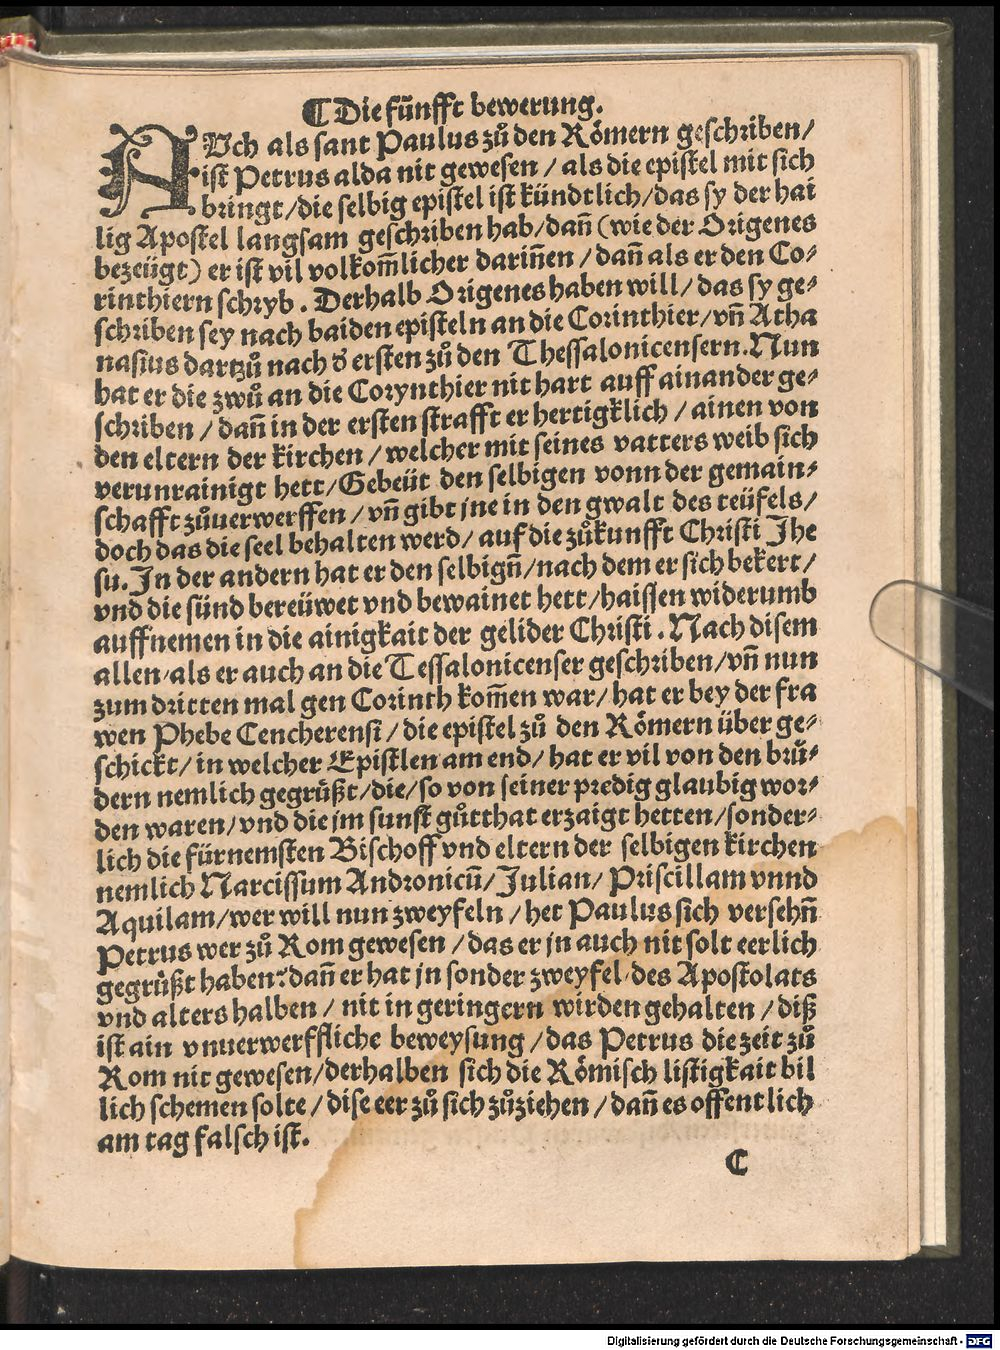 ¶ Die fünfft bewerung.
AUch als sant Paulus zů den Römern geschriben/
ist Petrus alda nit gewesen / als die epistel mit sich
bringt/die selbig epistel ist kündtlich/das sy der hai
lig Apostel langsam geschriben hab/dañ (wie der Origenes
bezeügt) er ist vil volkom̃licher dariñen / dañ als er den Co⸗
rinthiern schryb. Derhalb Origenes haben will/ das sy ge⸗
schriben sey nach baiden episteln an die Corinthier/vñ Atha
nasius dartzů nach d̕ ersten zů den Thessalonicensern. Nun
hat er die zwů an die Corynthier nit hart auff ainander ge⸗
schriben / dañ in der ersten strafft er hertigklich / ainen von
den eltern der kirchen / welcher mit seines vatters weib sich
verunrainigt hett/Gebeüt den selbigen vonn der gemain⸗
schafft zůuerwerffen / vñ gibt jne in den gwalt des teüfels/
doch das die seel behalten werd/ auf die zůkunfft Christi Jhe
su. In der andern hat er den selbigñ/nach dem er sich bekert/
vnd die sünd bereüwet vnd bewainet hett/haissen widerumb
auffnemen in die ainigkait der gelider Christi. Nach disem
allen/als er auch an die Tessalonicenser geschriben/vñ nun
zum dritten mal gen Corinth kom̃en war/ hat er bey der fra
wen Phebe Cencherensi / die epistel zů den Römern über ge⸗
schickt/ in welcher Epistlen am end/ hat er vil von den brů⸗
dern nemlich gegrüßt/die/so von seiner predig glaubig wor⸗
den waren/vnd die jm sunst gůtthat erzaigt hetten/sonder⸗
lich die fürnemsten Bischoff vnd eltern der selbigen kirchen
nemlich Narcissum Andronicũ/Julian/ Priscillam vnnd
Aquilam/wer will nun zweyfeln / het Paulus sich versehñ
Petrus wer zů Rom gewesen / das er jn auch nit solt eerlich
gegrüßt haben? dañ er hat jn sonder zweyfel/des Apostolats
vnd alters halben / nit in geringern wirden gehalten / diß
ist ain vnuerwerffliche beweysung / das Petrus die zeit zů
Rom nit gewesen/derhalben sich die Römisch listigkait bil
lich schemen solte / dise eer zů sich zůziehen / dañ es offentlich
am tag falsch ist.
C
Digitalisierung gefördert durch die Deutsche Forschungsgemeinschaft - DFG